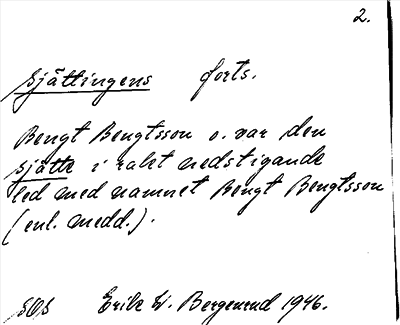 2.
Sjättingens forts.
Bengt Bengtsson o. var den
sjätte i rakt nedstigande
led med namnet Bengt Bengtsson
(enl. medd.).
SOS Erik W. Bergenrud 1946.